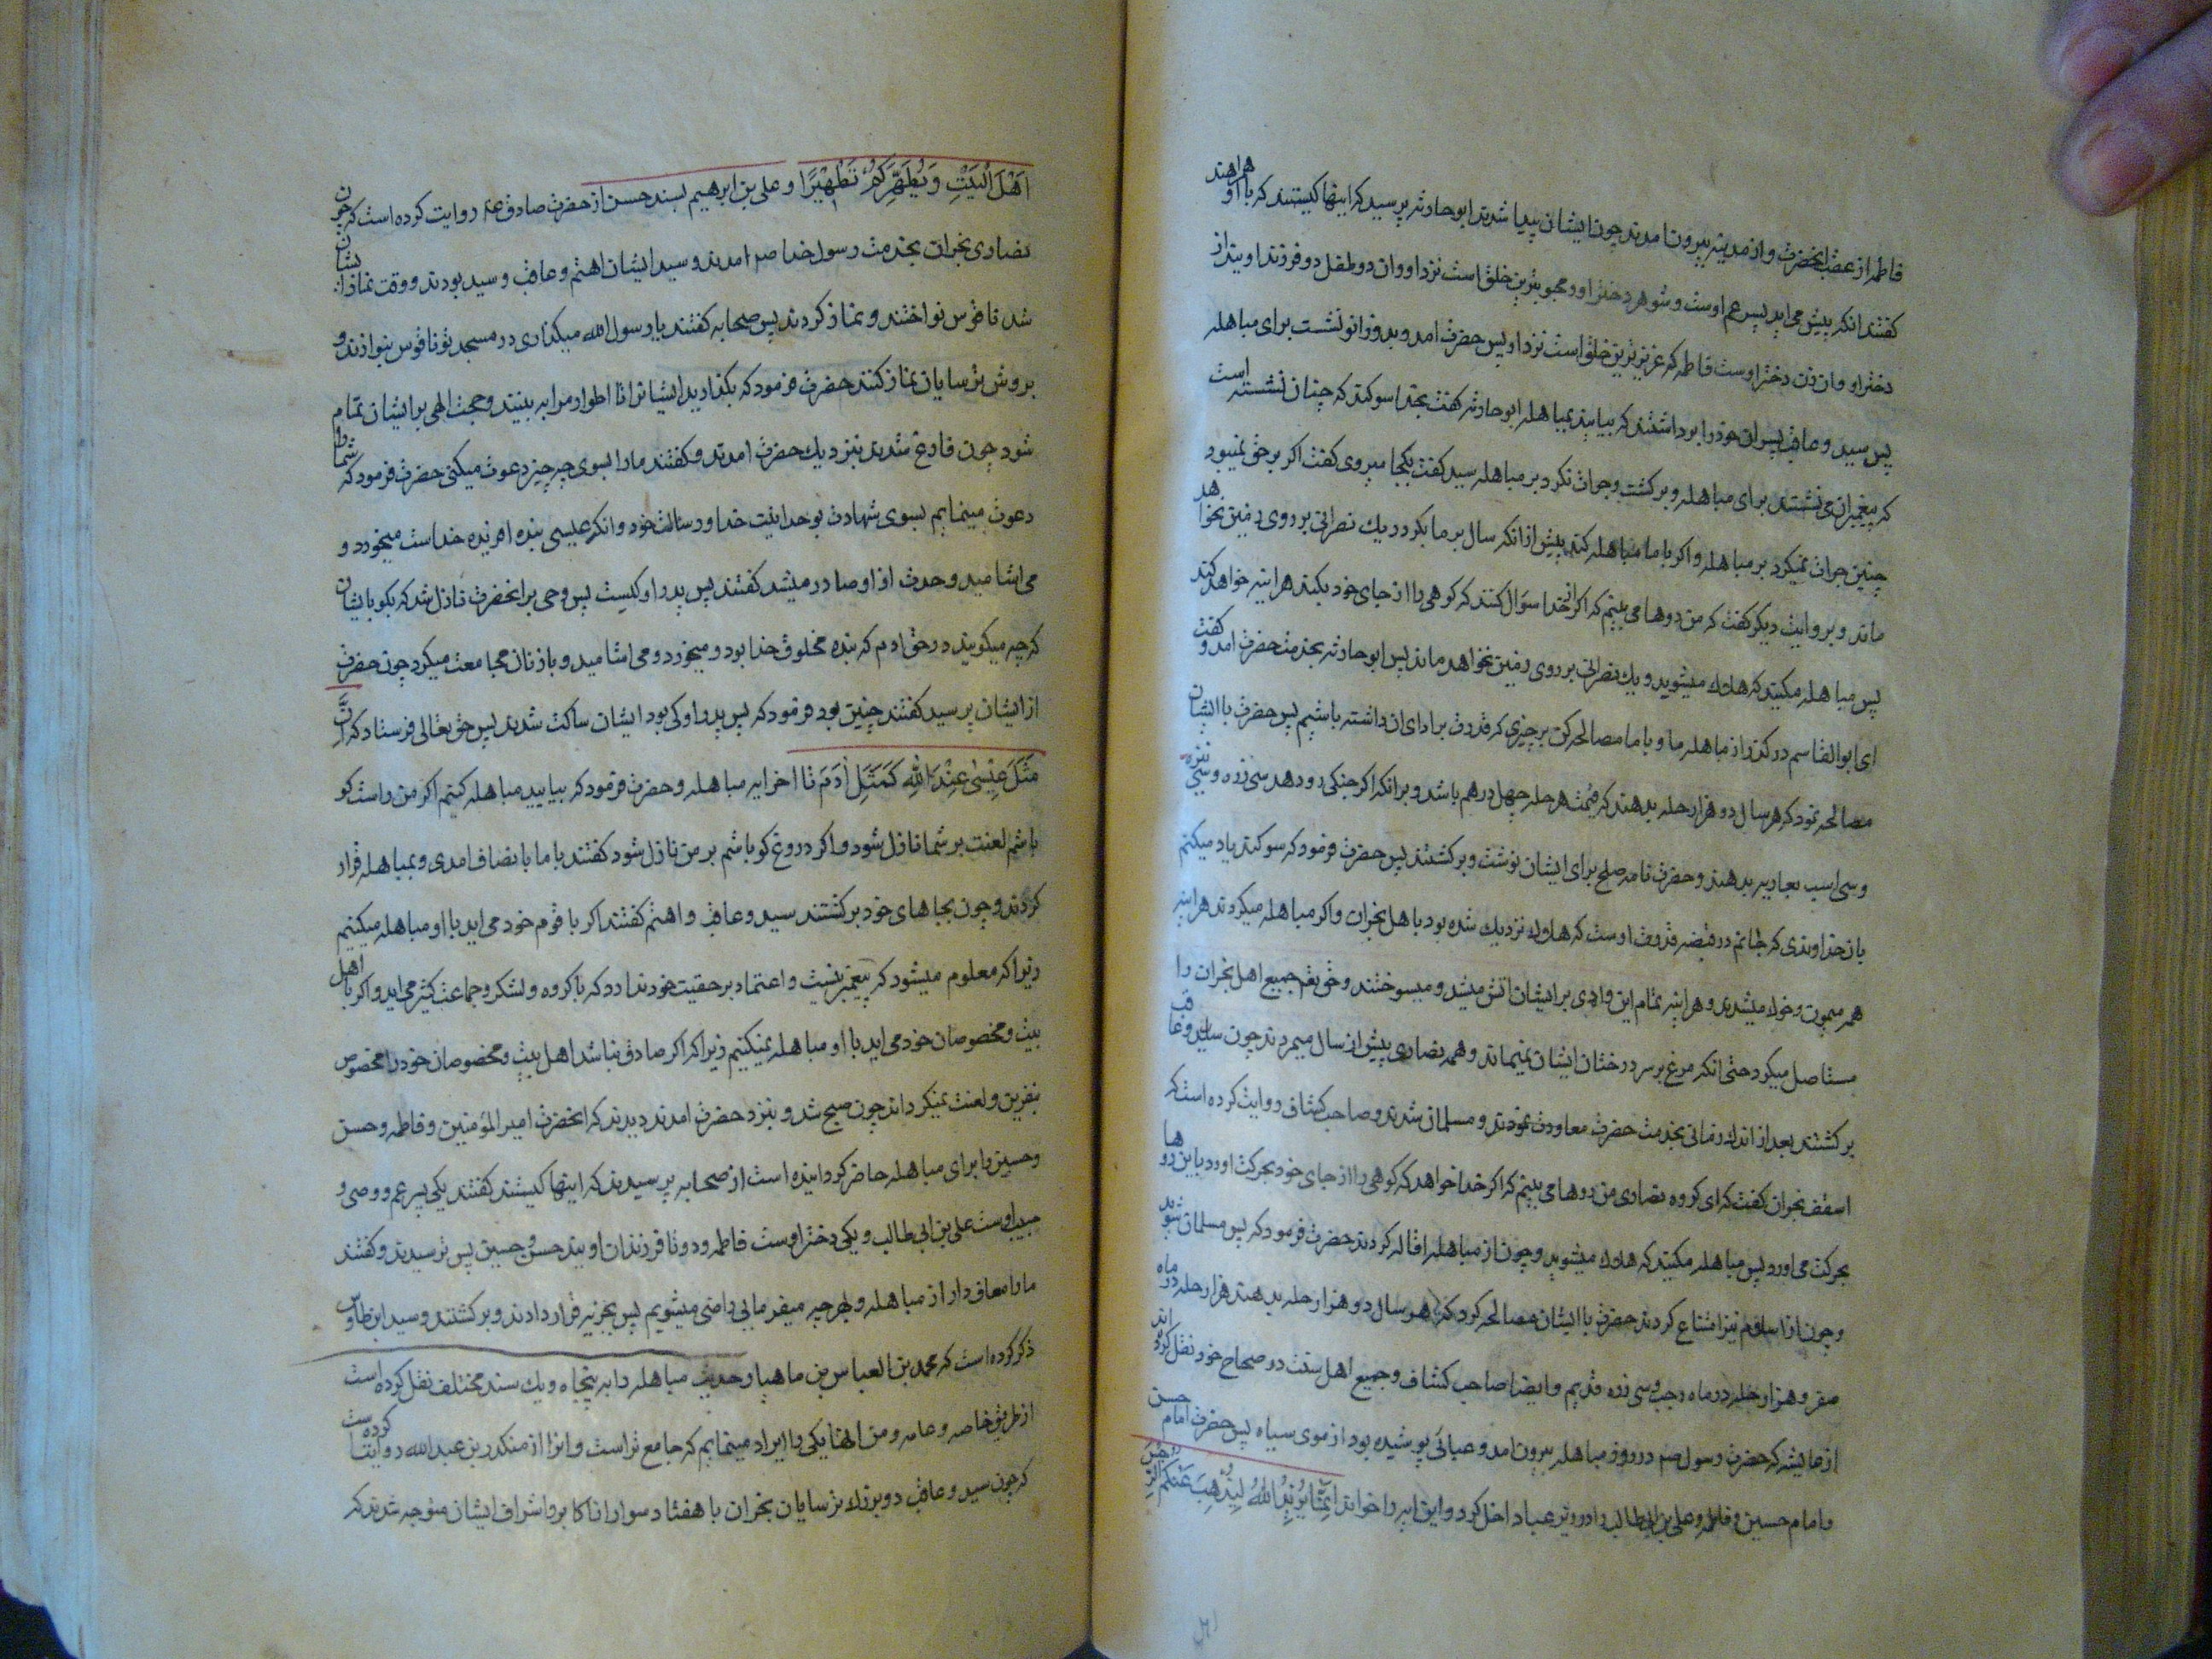 فاطمه از عقب انحضرت و از مدینه بیرون امدند چون ایشان پیدا شدند ابو حارثه پرسید که اینها کیستند که با او همراهند
کفتند انکه پیش می اید پسر عم اوست و شوهر دختر او و محبوبترین خلق است نزد او و ان دو طفل دو فرزند او یند از
دختر او و ان زن دختر اوست فاطمه که عزیزترین خلق است نزد او پس حضرت امد و بدو زانو نشست برای مباهله
پس سید و عاقب پسران خود را برداشتند که بیایند بمباهله ابو حارثه کفت بخدا سوکند که چنان نشسته است
که پیغمبران می نشستند برای مباهله و برکشت و جرات نکرد بر مباهله سید کفت بکجا میروی کفت اکر بر حق نمیبود
چنین جرات نمیکرد بر مباهله و اکر با ما مباهله کند پیش از انکه سال بر ما بکردد یک نصرانی بر روی زمین نخواهد
ماند و بروایت دیکر کفت که من روها می بینم که اکر از خدا سؤال کنند که کوهی را از جای خود بکند هراینه خواهد کند
پس مباهله مکنید که هلاک میشوید و یک نصرانی بر روی زمین نخواهد ماند پس ابو حارثه بخدمت حضرت امد و کفت
ای ابوالقاسم درکذر از مباهله ما و با ما مصالحه کن بر چیزی که قدرت بر ادای ان داشته باشیم پس حضرت با ایشان
مصالحه نمود که هر سال دو هزار حله بدهند که قیمت هر حله چهل درهم باشد و بر انکه اکر جنکی رو دهد سی زره و سی نیزه
و سی اسب بعاریه بدهند و حضرت نامه صلح برای ایشان نوشت و برکشتند پس حضرت فرمود که سوکند یاد میکنم
بان خداوندی که جانم در قبضه قدرت اوست که هلاک نزدیک شده بود باهل نجران و اکر مباهله میکردند هراینه
همه میمون و خوک میشدند و هراینه تمام این وادی بر ایشان اتش میشد و میسوختند و حق تعم جمیع اهل نجران را
مستاصل میکرد حتی انکه مرغ بر سر درختان ایشان نمیماند و همه نصاری پیش از سال میمردند چون سید و عاقب
برکشتند بعد از اندک زمانی بخدمت حضرت معاودت نمودند و مسلمان شدند و صاحب کشاف روایت کرده است که
اسقف نجران کفت که ای کروه نصاری من روها می بینم که اکر خدا خواهد که کوهی را از جای خود بحرکت اورد باین روها
بحرکت می اورد پس مباهله مکنید که هلاک میشوید و چون از مباهله اقاله کردند حضرت فرمود که پس مسلمان شوید
و چون از اسلام نیز امتناع کردند حضرت با ایشان مصالحه کرد که هر سال دو هزار حله بدهند هزار حله در ماه
صفر و هزار حله در ماه رجب و سی زره قدیم و ایضا صاحب کشاف و جمیع اهل سنت در صحاح خود نقل کرده اند
از عایشه که حضرت رسول صم در روز مباهله بیرون امد و عبائی پوشیده بود از موی سیاه پس حضرت امام حسن
و امام حسین و فاطمه و علی بن ابیطالب را در زیر عبا داخل کرد و این ایه را خواند اِنَّمَا یُرِیْدُ اللّٰهُ لِیُذْهِبَ عَنْکُمُ الرِّجْسَ
اَهْلَ الْبَیْتِ وَ یُطَهِّرَکُمْ تَطْهِیْرًا و علی بن ابرهیم بسند حسن از حضرت صادق عم روایت کرده است که چون
نصاری نجران بخدمت رسول خدا صم امدند و سید ایشان اهتم و عاقب و سید بودند و وقت نماز ایشان
شد ناقوس نواختند و نماز کردند پس صحابه کفتند یا رسول الله میکذاری در مسجد تو ناقوس بنوازند و
بروش ترسایان نماز کنند حضرت فرمود که بکذارید ایشانرا تا اطوار مرا به بینند و حجت الهی بر ایشان تمام
شود چون فارغ شدند بنزدیک حضرت امدند و کفتند ما را بسوی چه چیز دعوت میکنی حضرت فرمود که شما را
دعوت مینمایم بسوی شهادت بوحدانیت خدا و رسالت خود و انکه عیسی بنده افریده خداست میخورد و
می اشامید و حدث از او صادر میشد کفتند پس پدر او کیست پس وحی بر انحضرت نازل شد که بکو بایشان
که چه میکویید در حق ادم که بنده مخلوق خدا بود و میخورد و می اشامید و با زنان مجامعت میکرد چون حضرت
از ایشان پرسید کفتند چنین بود فرمود که پس پدر او کی بود ایشان ساکت شدند پس حق تعالی فرستاد که اِنَّ
مَثَلَ عِیْسٰی عِنْدَ اللّٰهِ کَمَثَلِ اٰدَمَ تا اخر ایه مباهله و حضرت فرمود که بیایید مباهله کنیم اکر من راست کو
باشم لعنت بر شما نازل شود و اکر دروغ کو باشم بر من نازل شود کفتند با ما بانصاف امدی و بمباهله قرار
کردند و چون بجاهای خود برکشتند سید و عاقب و اهتم کفتند اکر با قوم خود می اید با او مباهله میکنیم
زیرا که معلوم میشود که پیغمبر نیست و اعتماد بر حقیت خود ندارد که با کروه و لشکر و جماعت کثیر می اید و اکر با اهل
بیت و مخصوصان خود می اید با او مباهله نمیکنیم زیرا که اکر صادق نباشد اهل بیت و مخصوصان خود را مخصوص
بنفرین و لعنت نمیکرداند چون صبح شد و بنزد حضرت امدند دیدند که انحضرت امیر المؤمنین و فاطمه و حسن
و حسین را برای مباهله حاضر کردانیده است از صحابه پرسیدند که اینها کیستند کفتند یکی پسر عم و وصی و
حبیب اوست علی بن ابی طالب و یکی دختر اوست فاطمه و دو تا فرزندان اویند حسن و حسین پس ترسیدند و کفتند
ما را معاف دار از مباهله و بهر چه میفرمایی راضی میشویم پس بجزیه قرار دادند و برکشتند و سید ابن طاوس
ذکر کرده است که محمد بن العباس بن ماهیار حدیث مباهله را به پنجاه و یک سند مختلف نقل کرده است
از طریق خاصه و عامه و من انها یکی را ایراد مینمایم که جامع تر است و انرا از منکدر بن عبدالله روایت کرده است
که چون سید و عاقب دو بزرک ترسایان نجران با هفتاد سوار از اکابر و اشراف ایشان متوجه شدند که